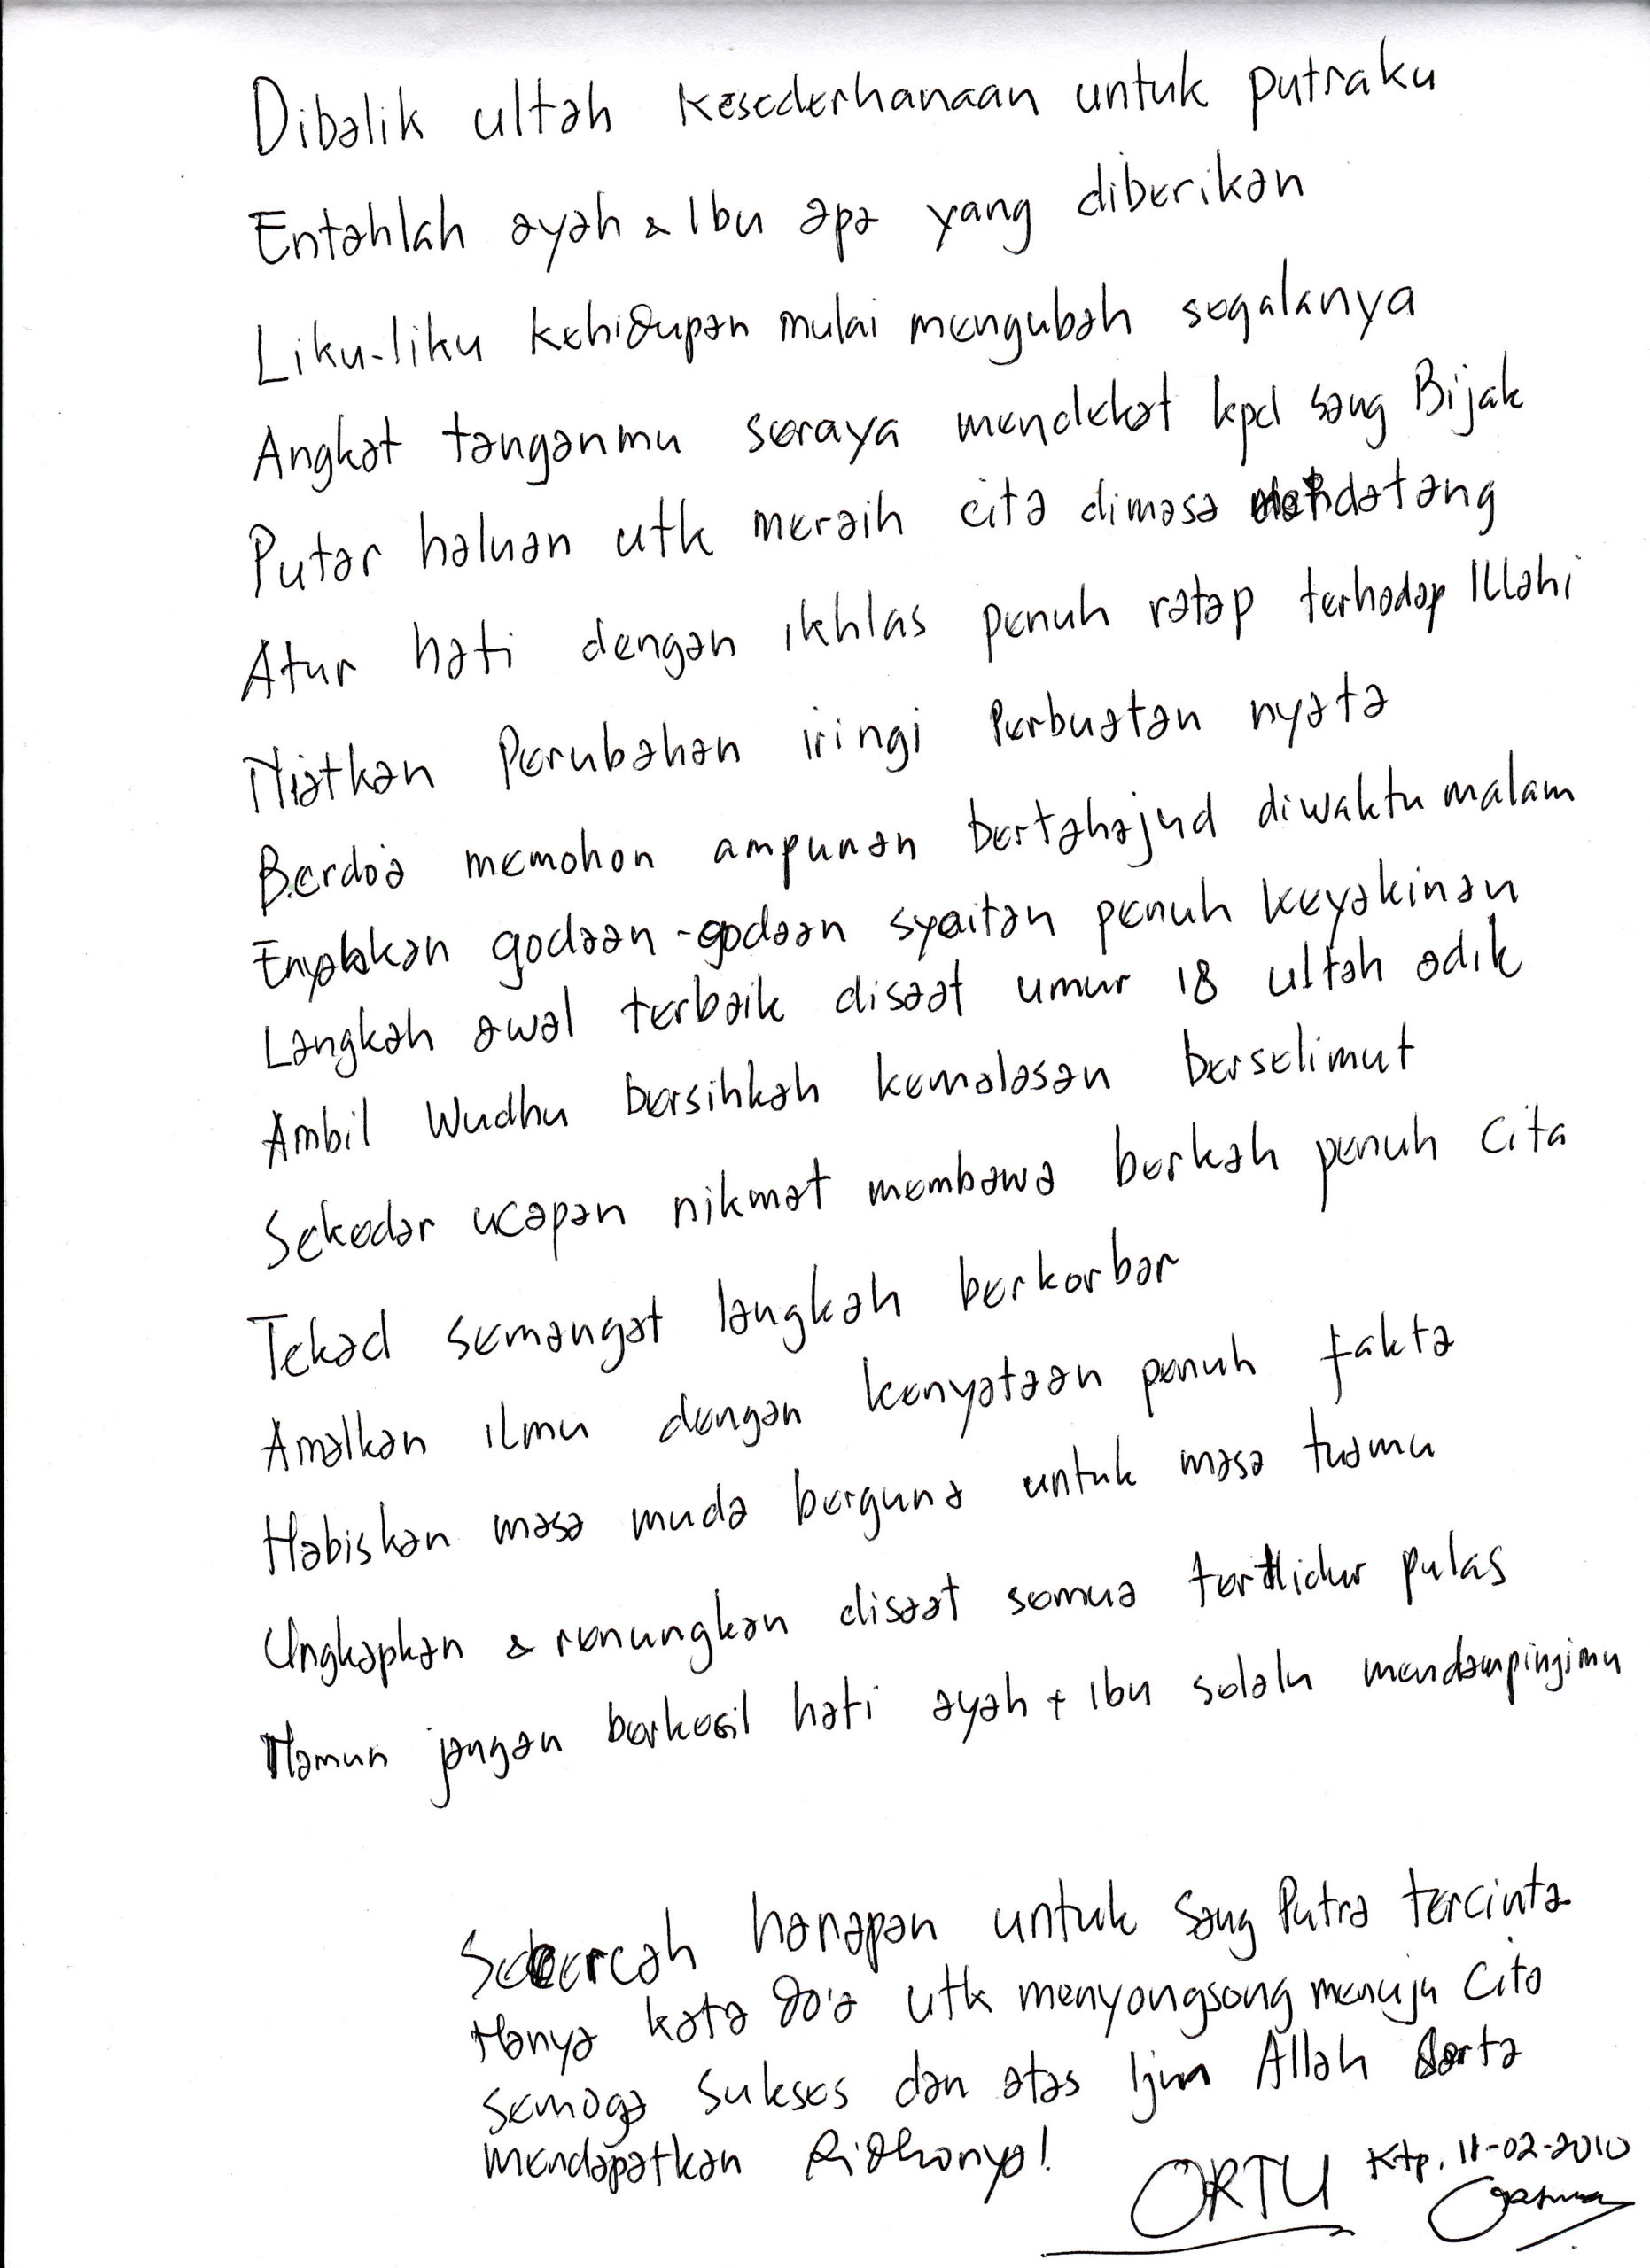 Dibalik ultah kesederhanaan untuk putraku
Entahlah ayah & Ibu apa yang diberikan
Liku-liku kehidupan mulai mengubah segalanya
Angkat tanganmu seraya mendekat kpd sang Bijak
Putar haluan utk meraih cita dimasa mendatang
Atur hati dengan ikhlas penuh ratap terhadap Illahi
Niatkan Perubahan iringi Perbuatan nyata
Berdo'a memohon ampunan bertahajud diwaktu malam
Enyakkan godaan-godaan syaitan penuh keyakinan
Langkah awal terbaik disaat umur 18 ultah adik
Ambil Wudhu bersihkah kemalasan berselimut
Sekedar ucapan nikmat membawa berkah penuh cita
Tekad semangat langkah berkorbar
Amalkan ilmu dengan kenyataan penuh fakta
Habiskan masa muda berguna untuk masa tuamu
Ungkapkan & renungkan disaat semua tertidur pulas
Namun jangan berkecil hati ayah + Ibu selalu mendampingimu
Secercah harapan untuk Sang Putra tercinta
Hanya kata do'a utk menyongsong menuju Cita
semoga sukses dan atas Ijin Allah serta
mendapatkan Ridhonya!
ORTU Ktp, 11-02-2010